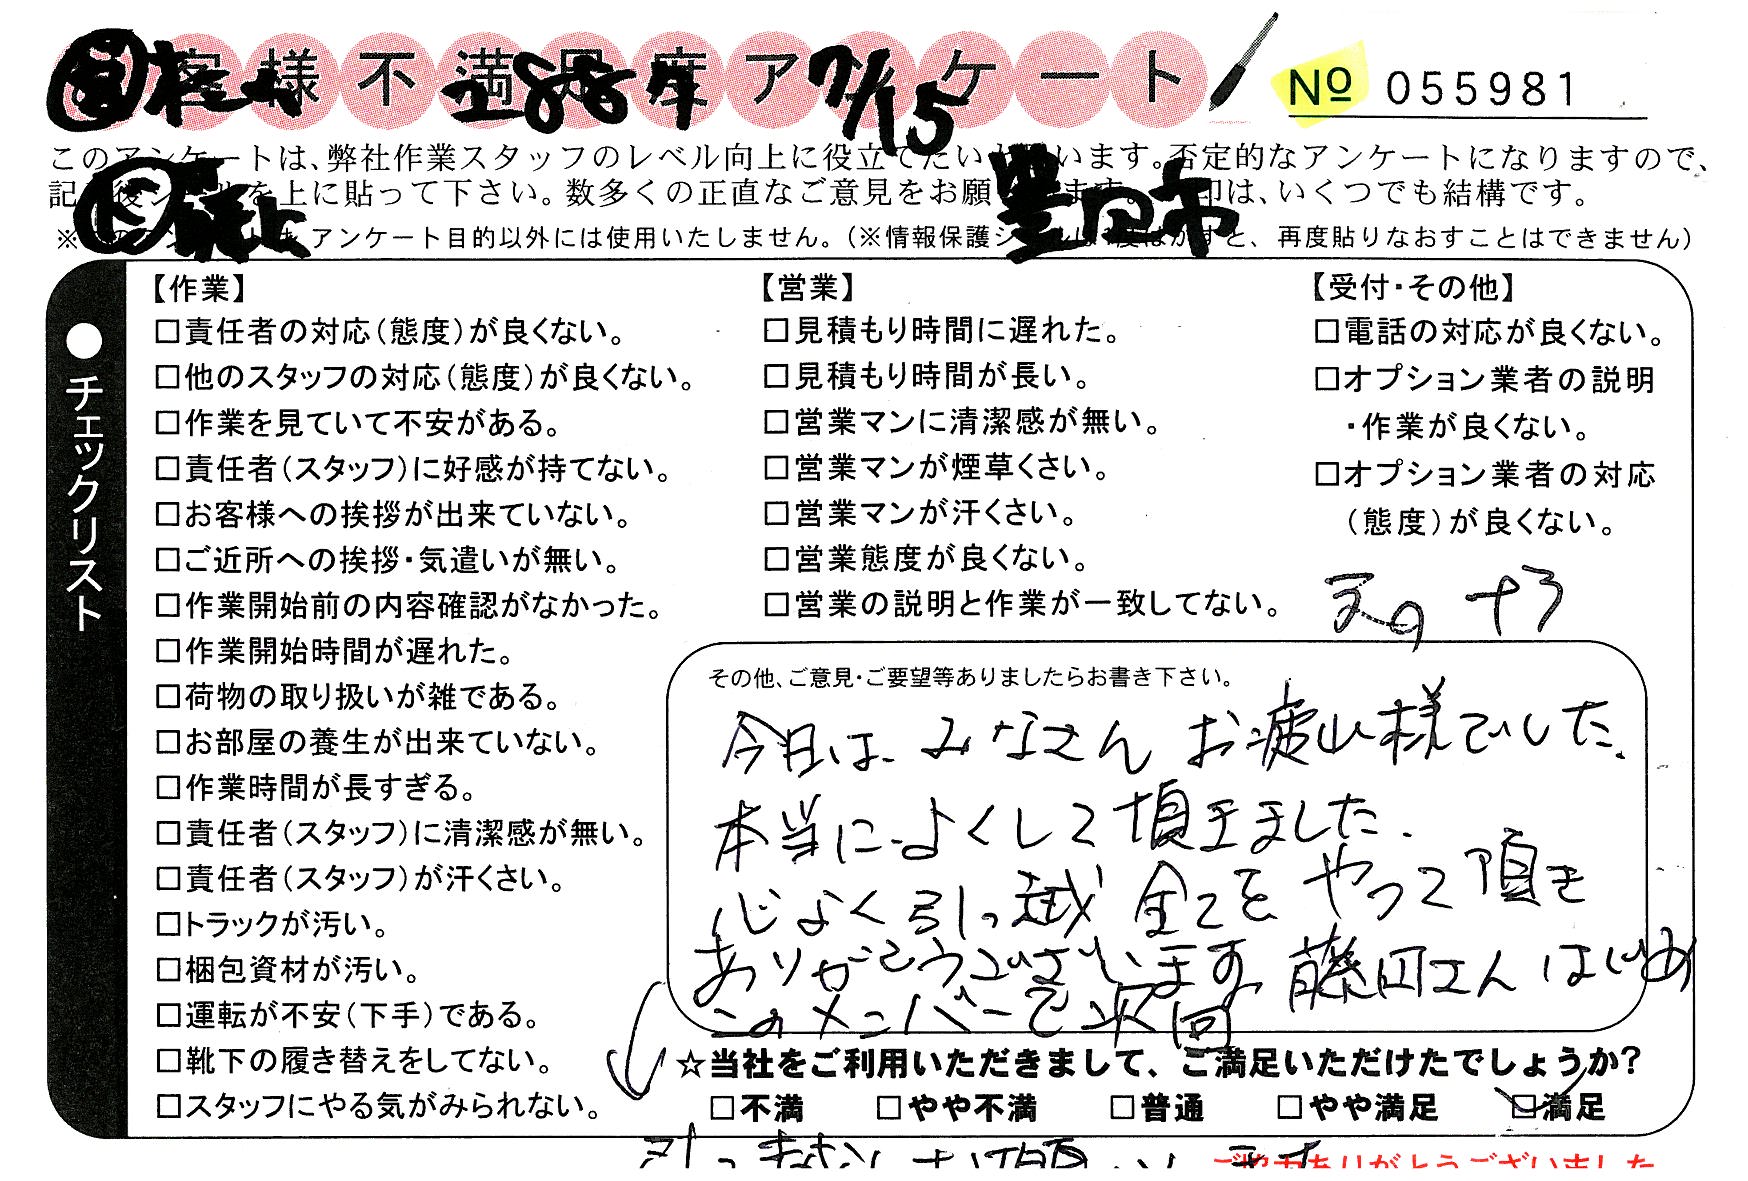 お客様不満足度アンケート
7/15
No 055981
このアンケートは、弊社作業スタッフのレベル向上に役立てたいと思います。否定的なアンケートになりますので、
記入後シールを上に貼って下さい。数多くの正直なご意見をお願いします。印は、いくつでも結構です。
豊田市
※このアンケートは、アンケート目的以外には使用いたしません。（※情報保護シールは1度はがすと、再度貼りなおすことはできません）
●チェックリスト
【作業】
□責任者の対応（態度）が良くない。
□他のスタッフの対応（態度）が良くない。
□作業を見ていて不安がある。
□責任者（スタッフ）に好感が持てない。
□お客様への挨拶が出来ていない。
□ご近所への挨拶・気遣いが無い。
□作業開始前の内容確認がなかった。
□作業開始時間が遅れた。
□荷物の取り扱いが雑である。
□お部屋の養生が出来ていない。
□作業時間が長すぎる。
□責任者（スタッフ）に清潔感が無い。
□責任者（スタッフ）が汗くさい。
□トラックが汚い。
□梱包資材が汚い。
□運転が不安（下手）である。
□靴下の履き替えをしてない。
□スタッフにやる気がみられない。
【営業】
□見積もり時間に遅れた。
□見積もり時間が長い。
□営業マンに清潔感が無い。
□営業マンが煙草くさい。
□営業マンが汗くさい。
□営業態度が良くない。
□営業の説明と作業が一致してない。
【受付・その他】
□電話の対応が良くない。
□オプション業者の説明
・作業が良くない。
□オプション業者の対応
（態度）が良くない。
その他、ご意見・ご要望等ありましたらお書き下さい。
今日は、みなさんお疲れ様でした。
本当によくして頂きました。
心よく引っ越全てをやって頂き
ありがとうございます。藤田さんはじめ
このメンバーで次回
☆当社をご利用いただきまして、ご満足いただけたでしょうか?
□不満 □やや不満 □普通 □やや満足 ☑満足
ご協力ありがとうございました